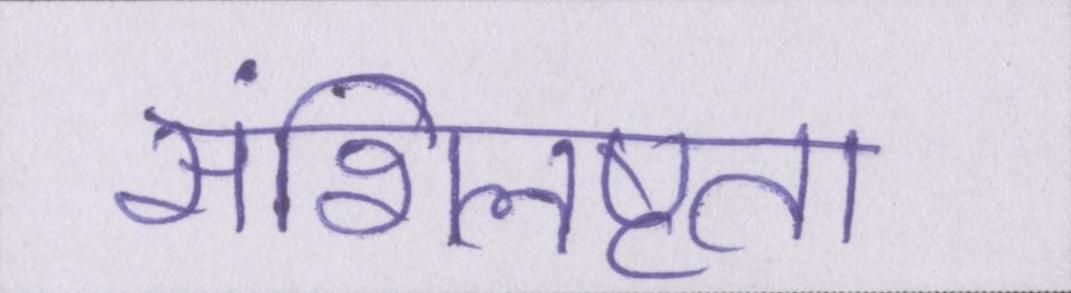 संश्लिष्टता